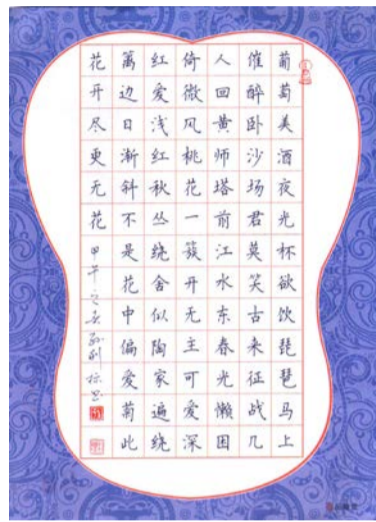 葡萄美酒夜光杯欲饮琵琶马上
催醉卧沙场君莫笑古来征战几
人回黄师塔前江水东春光懒困
倚微风桃花一簇开无主可爱深
红爱浅红秋丛绕舍似陶家遍绕
篱边日渐斜不是花中偏爱菊此
花开尽更无花
甲午之春